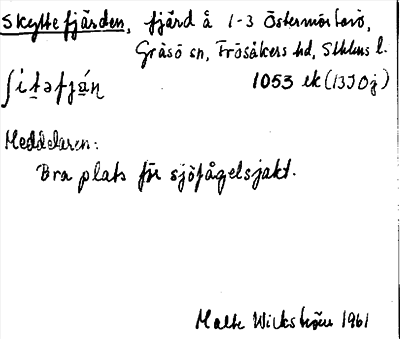 Skyttefjärden, fjärd å 1-3 Östermörtarö,
Gräsö sn, Frösåkers hd, Sthlms l.
ʃítəfjáṇ 1053 ek (13I0j)
Meddelaren:
Bra plats för sjöfågelsjakt.
Malte Wickström 1961